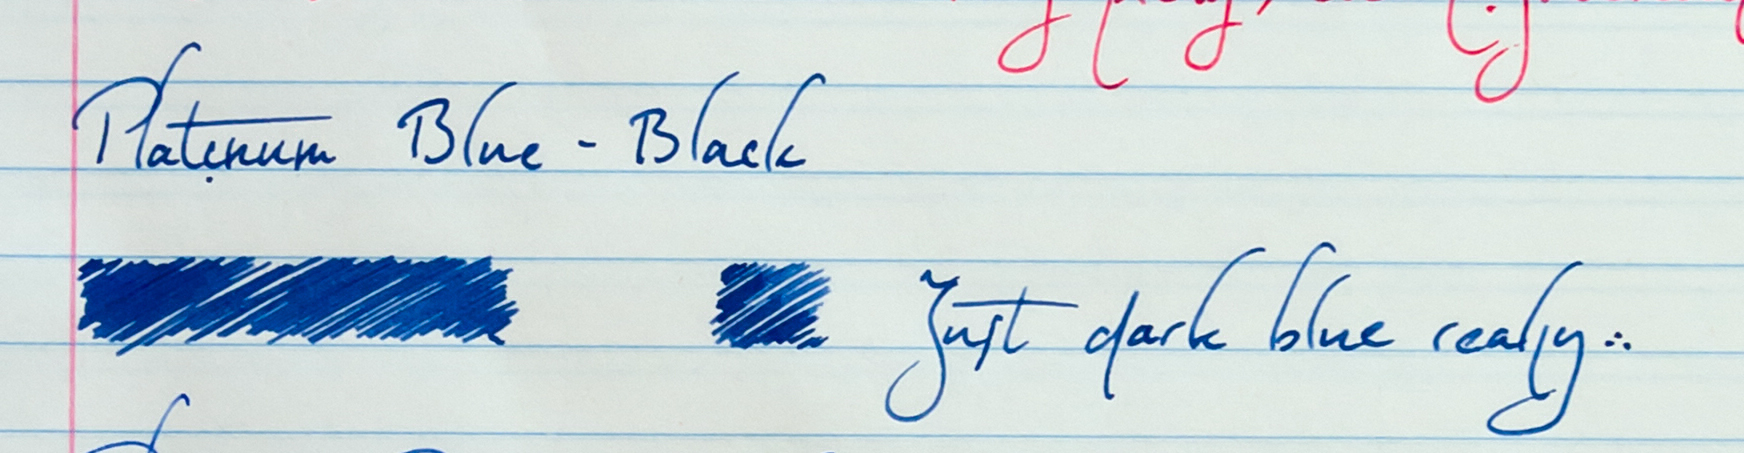 Platinum Blue-Black
Just dark blue really...